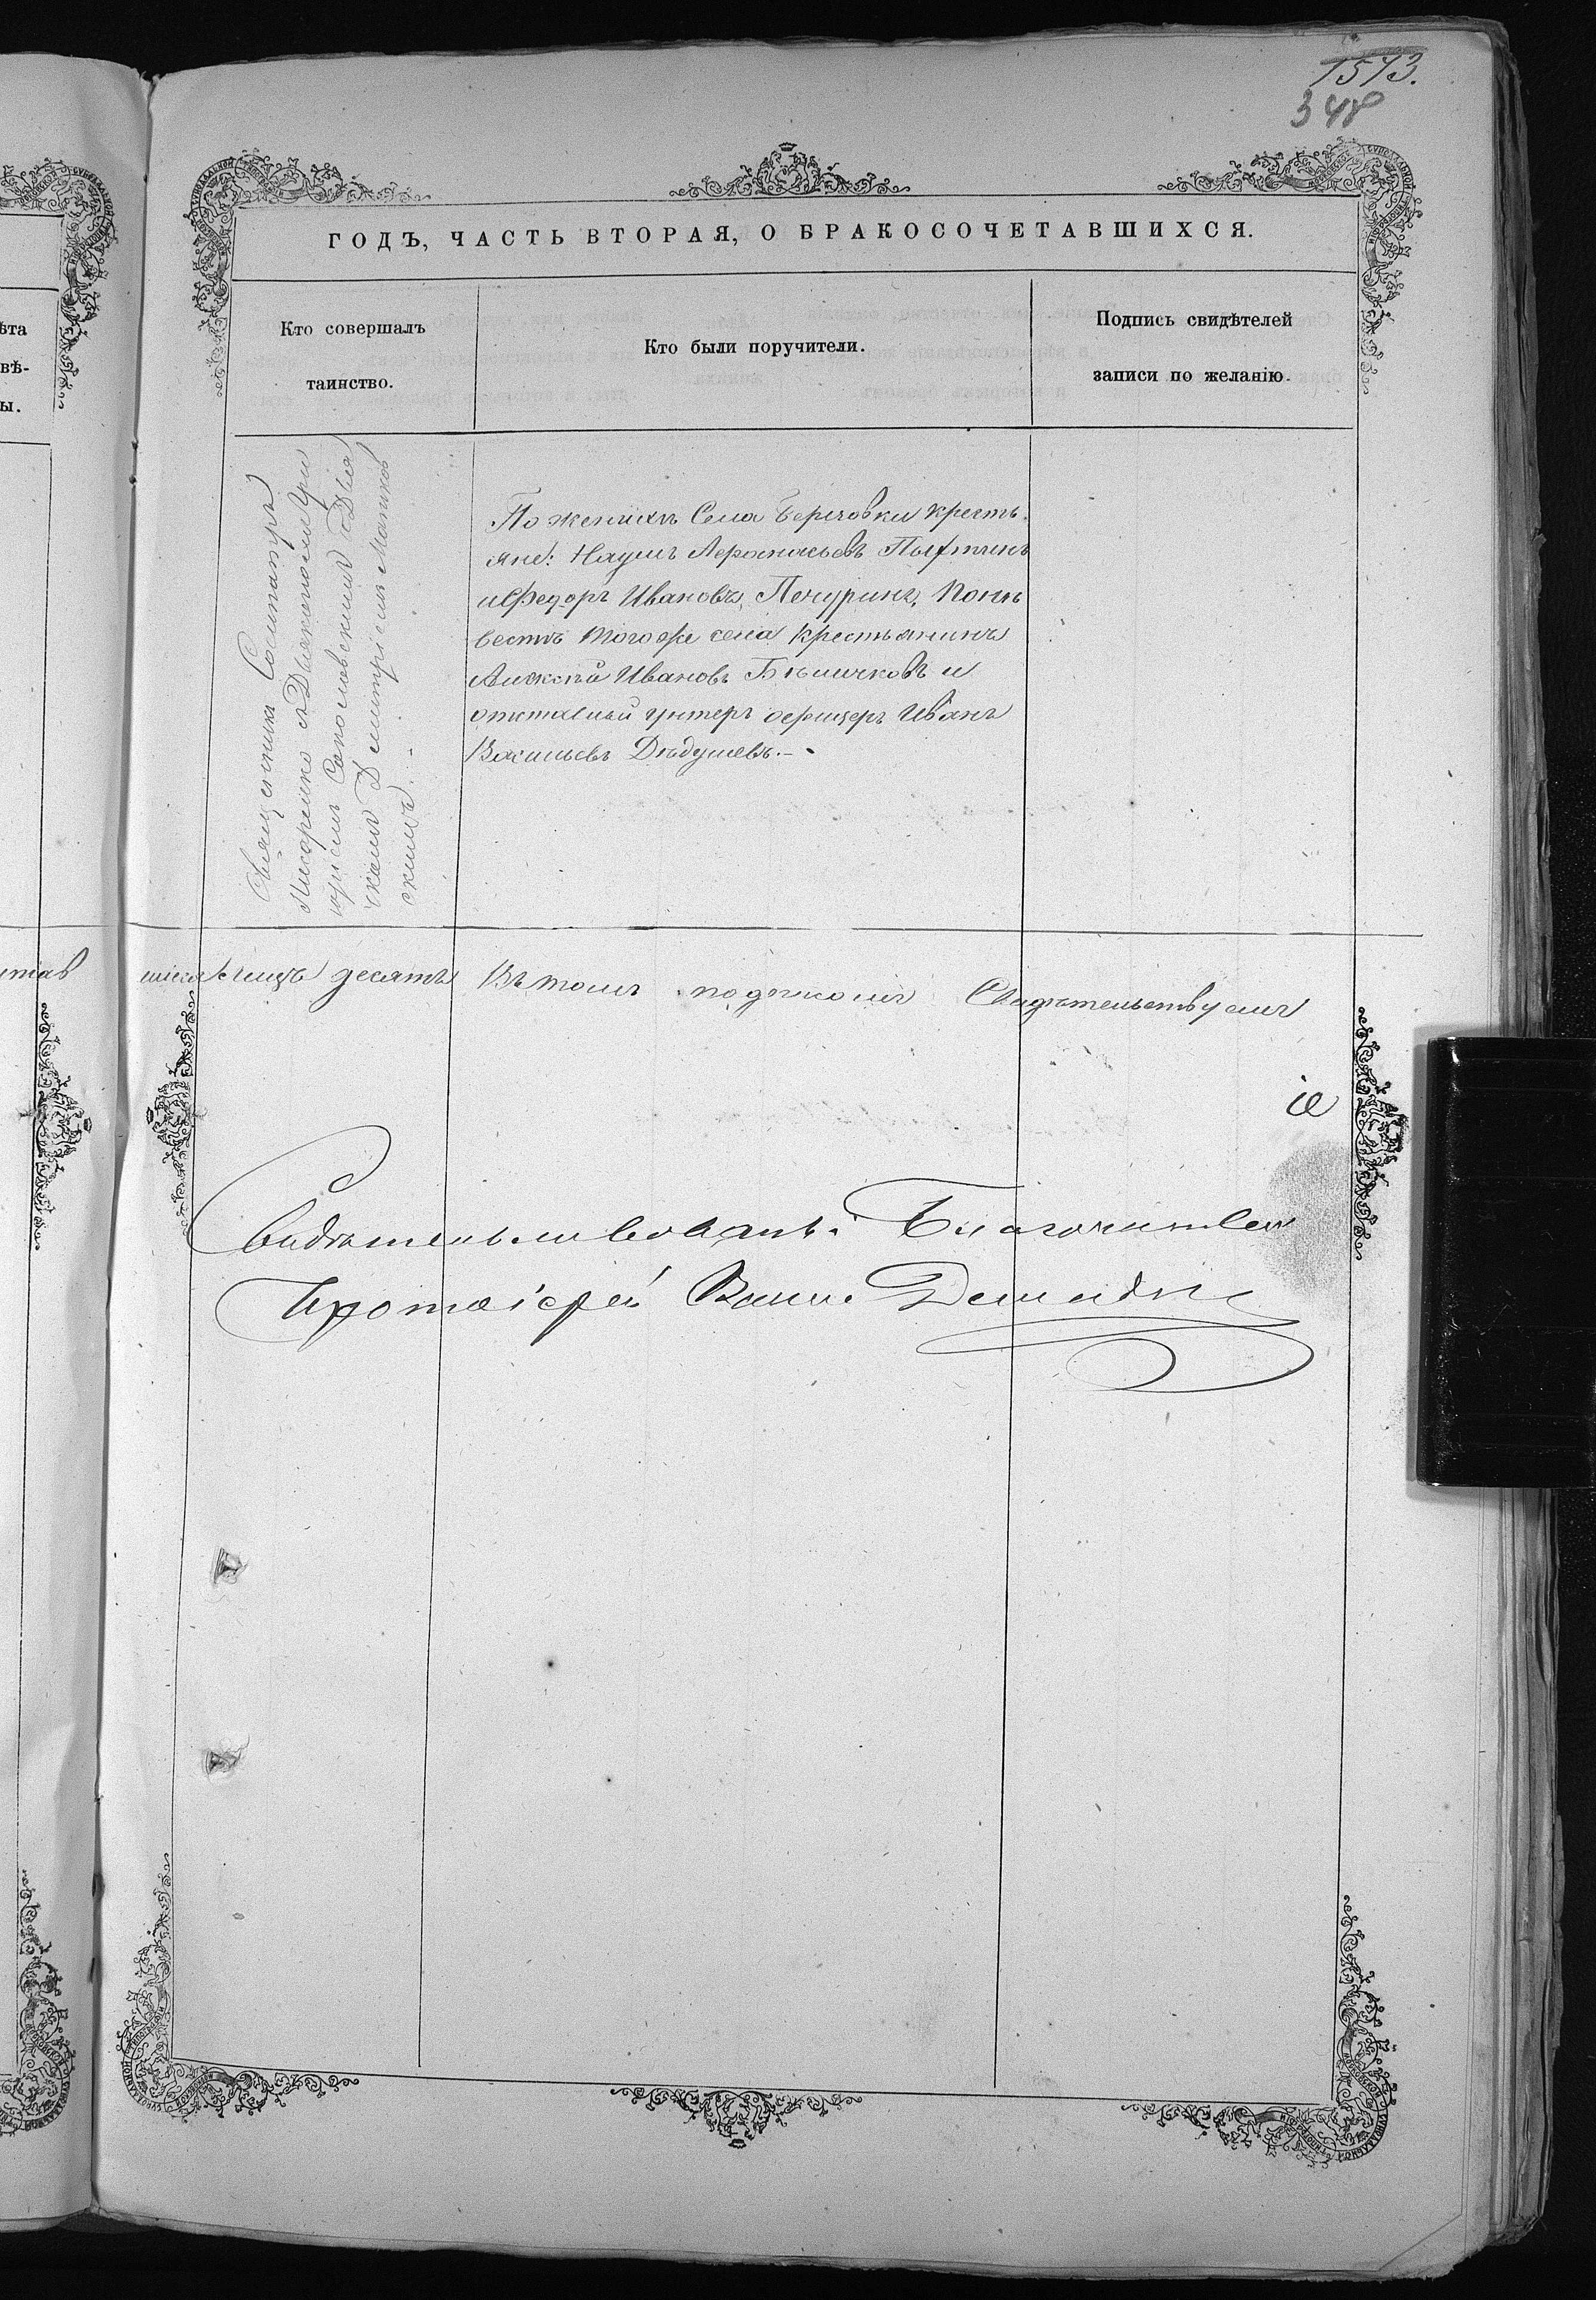 1573.
348
ГОДЪ, ЧАСТЬ ВТОРАЯ, О БРАКОСОЧЕТАВШИХСЯ.
ѣта
вѣ-
ы.
Кто совершалъ
таинство.
Кто были поручители.
Подпись свидѣтелей
записи по желанію.
Священникъ
Писаренко съ Дьякономъ Гри
горіемъ Соколовскимъ и Дьяч
комъ Димитріемъ Маликов
скимъ.
По женихѣ Села Березовки кресть
яне: Наумъ Афанасьевъ
и Федоръ Ивановъ Печуринъ, По не
вестѣ того же села крестьянинъ
Алексѣй Ивановъ Бѣличковъ и
отставный унтеръ офицеръ Иванъ
Васильевъ Дѣдушевъ. –
шихся лицъ десять Въ томъ подписомъ Свидѣтельствуемъ
Свидѣтельствовалъ Благочинный
Протоіерей Демидовъ